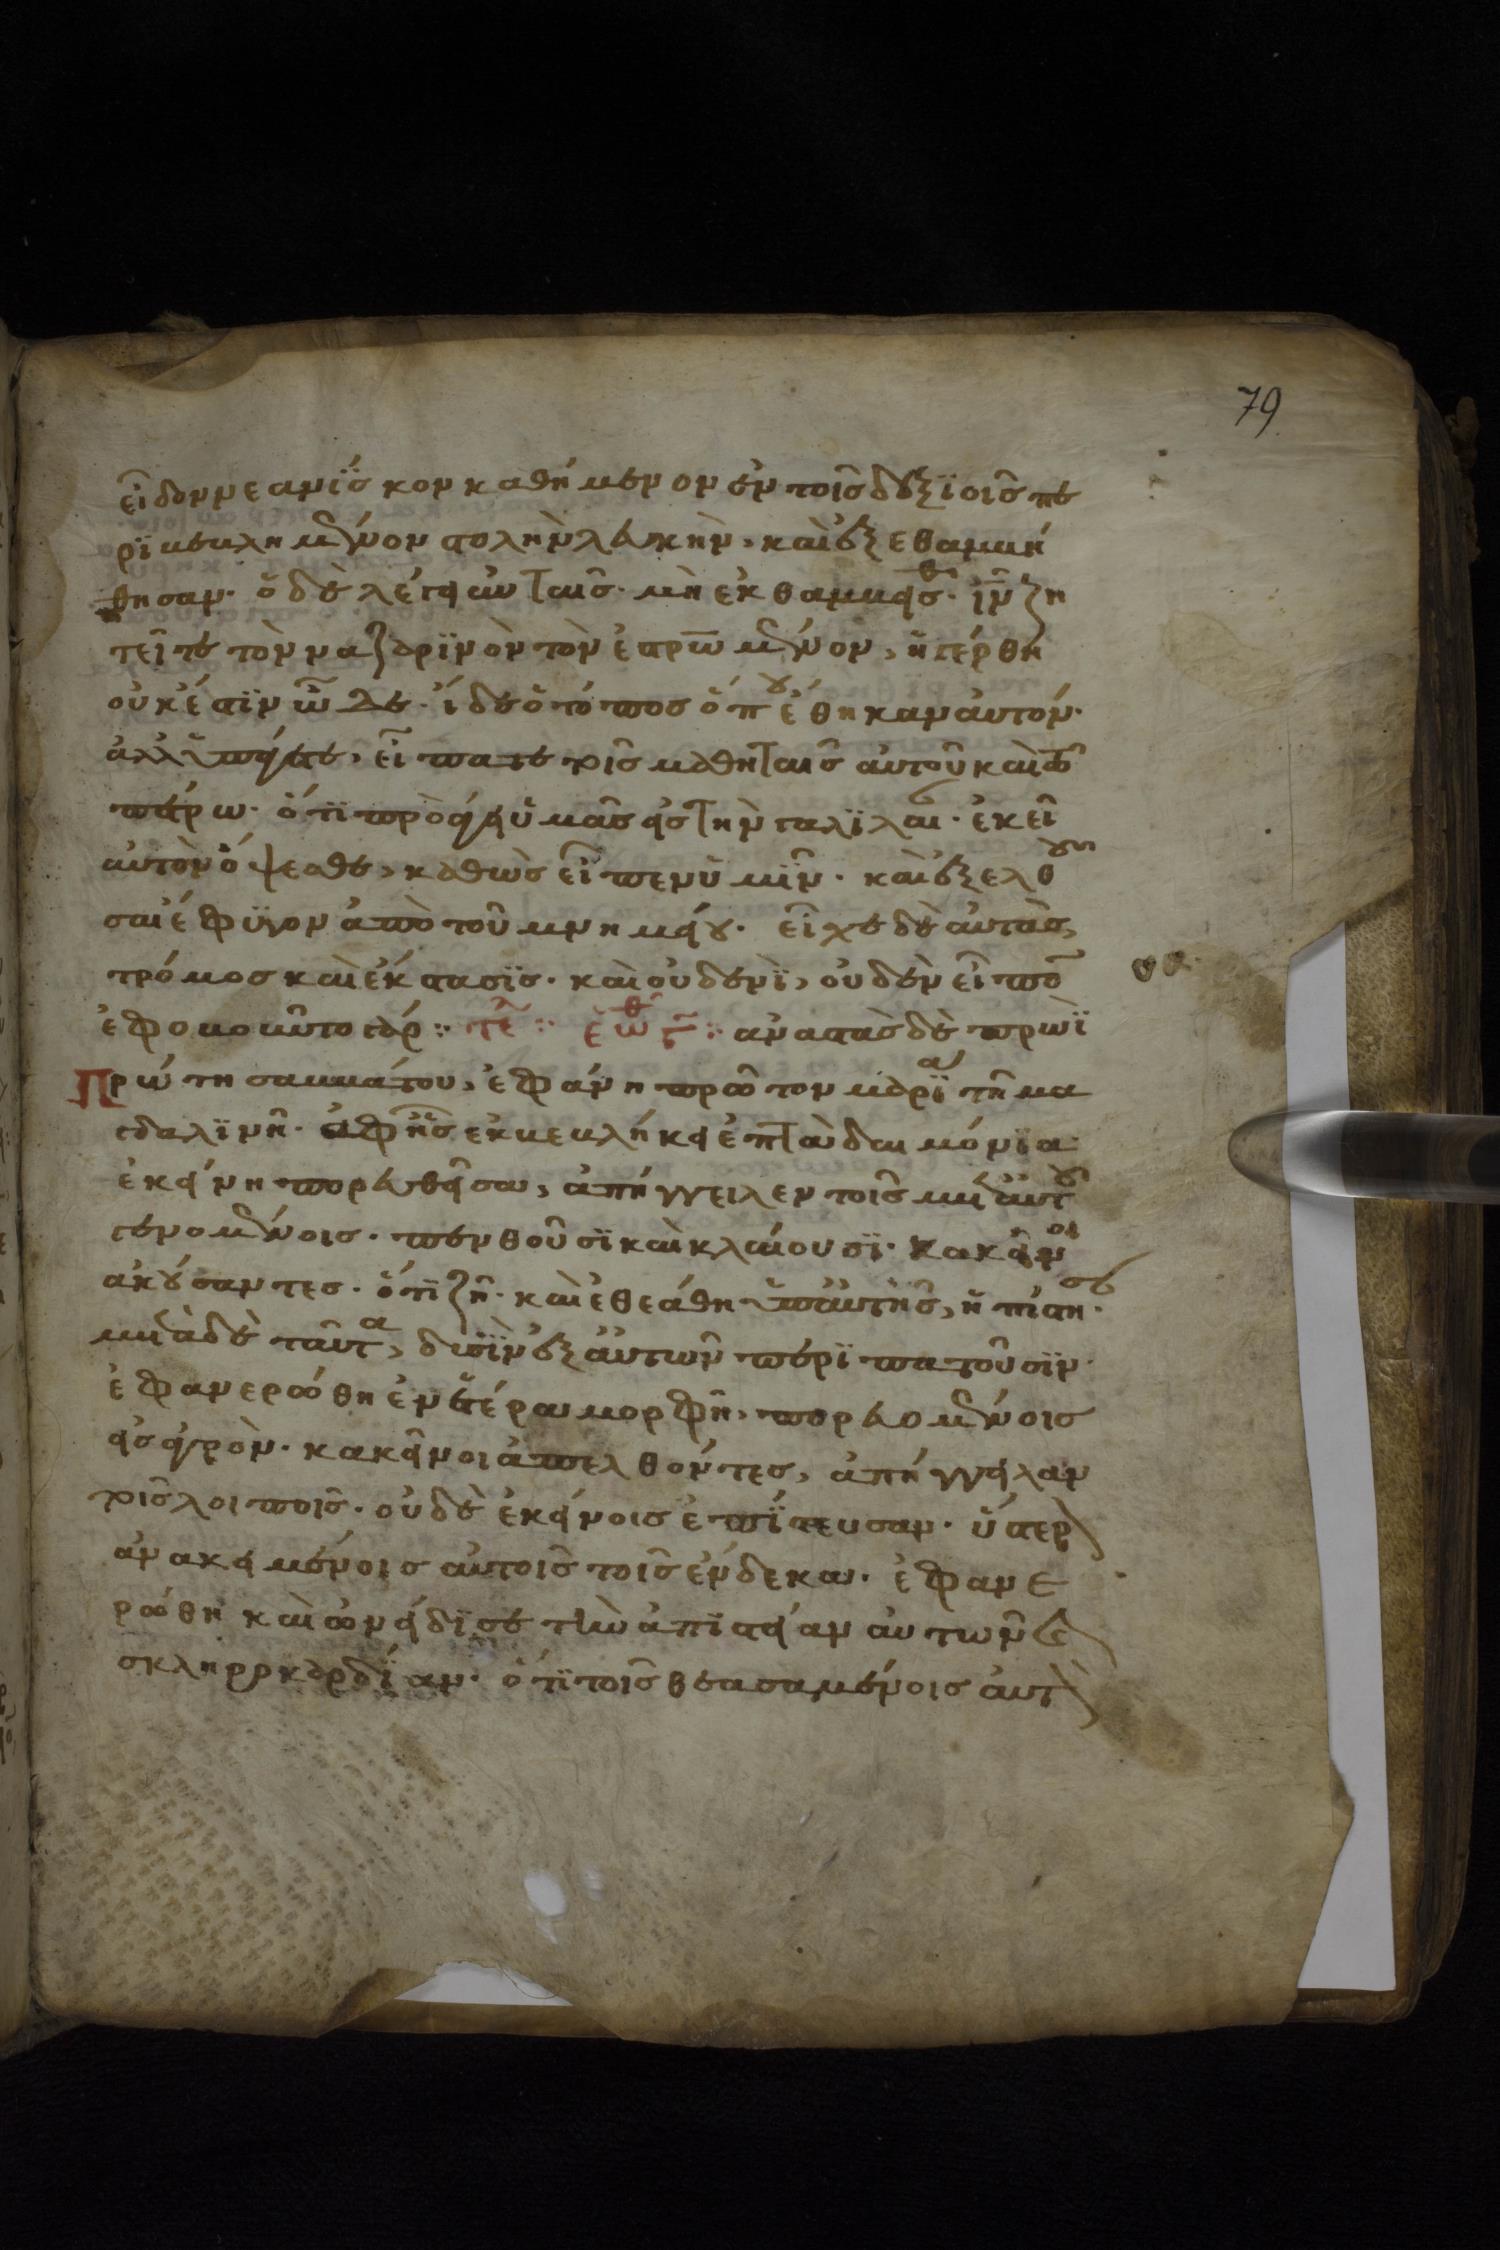 79
εἶδον νεανΐσκον καθήμενον ἐν τοῖς δεξϊοῖς πε
ρϊβεβλημένον στολὴν λευκὴν, καὶ ἐξεθαμβή
θησαν. ὁ δὲ λέγει αὐταῖς. μὴ ἐκθαμβεῖσθ. ἰν ζη
τεῖτε τὸν ναζαρϊνὸν τὸν ἐστρωμένον, ἠγέρθη
οὐκ έστϊν ὧδε. ἴδε ὁ τόπος ὅπου ἔθηκαν αὐτόν.
ἀλλ ὑπάγετε, εἴπατε τοῖς μαθηταῖς αὐτοῦ καὶ τῶ
πέτρω. ὅτϊ προάγει ὑμᾶς εἰς τὴν γαλϊλαι. ἐκεῖ
αὐτὸν ὄψεσθε, καθὼς εἶπεν ὑμῖν. καὶ ἐξελθου
σαι έφϋγον ἀπὸ τοῦ μνημείου. εἶχε δὲ αὐτὰς,
τρόμος καὶ έκστασϊς. καὶ οὐδενὶ, οὐδὲν εἶπο
ἐφοβοῦντο γάρ :· τε :· ἑωθ γ :· αναστὰς δὲ πρωῒ
Πρώτη σαββάτου, ἐφάνη πρῶτον μαρϊα τῆ μα
γδαλϊνῆ. ἀφ ῆς ἐκβεβλήκει ἑπτὰ δαιμόνϊα
ἐκείνη πορευθεῖσα, ἀπήγγειλεν τοῖς μετ αὐτου
γενομένοις. πενθοῦσϊ καὶ κλαίουσϊ. κακεῖνοι
ακούσαντες. ὅτϊ ζῆ. καὶ ἐθεάθη ὑπ αὐτῆς, ἠπίστησ.
μετὰ δὲ ταῦτα, δυσῒν ἐξ αὐτῶν περϊπατοῦσϊν.
ἐφανερώθη ἐν ἑτέρα μορφῆ, πορευομένοις
εἰς ἀγρὸν. κακεῖνοι ἀπελθόντες, ἀπήγγειλαν
τοῖς λοιποῖς. οὐδὲ ἐκείνοις ἐπΐστευσαν. ὕστερ
ἀνακειμένοις αὐτοῖς τοῖς ἕνδεκα. ἐφανε
ρώθη καὶ ὠνείδϊσε τὴν ἀπϊστείαν αὐτῶν κ
σκληροκαρδΐαν. ὅτϊ τοῖς θεασαμένοις αὐτ